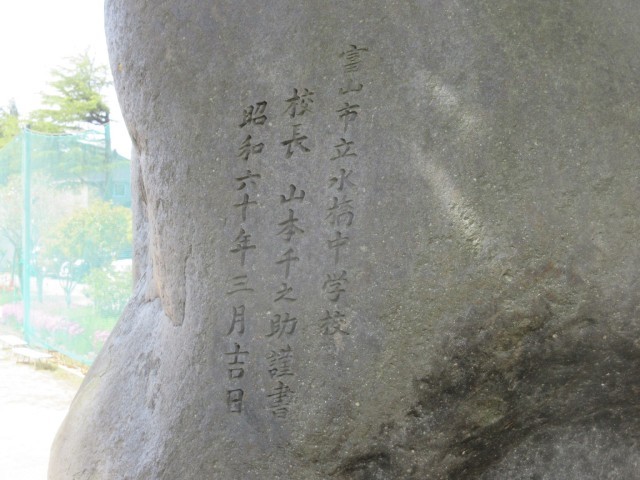 富山市立水橋中学校
校長 山本千之助 謹書
昭和六十年三月吉日